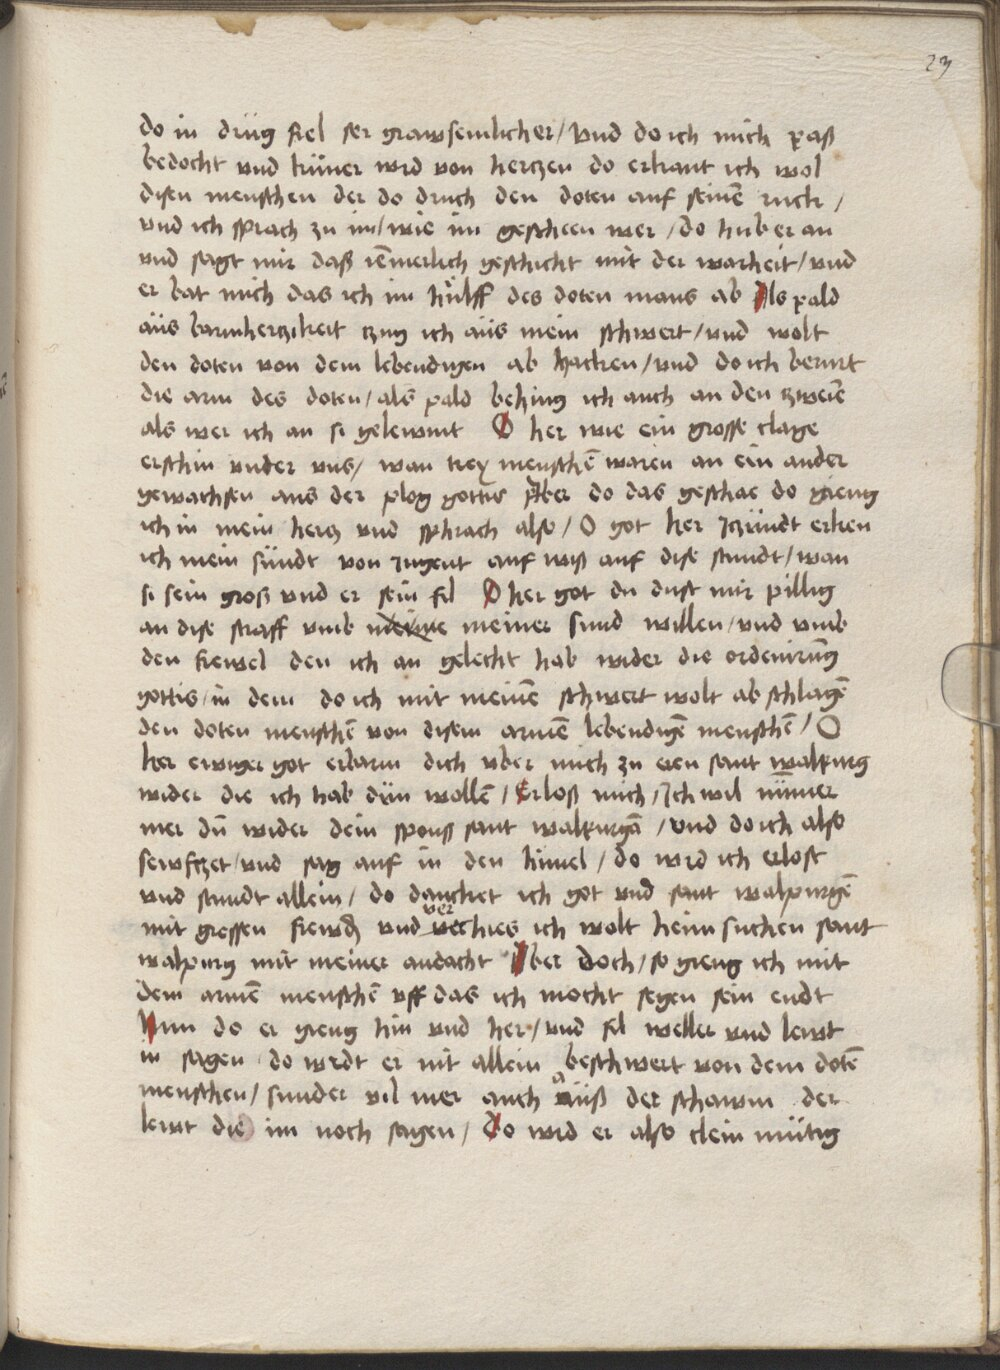 23
do in drüg fiel ser grawsemlicher / Vnd do ich mich paß
bedocht vnd küner wrd von hertzen do erkant ich wol
disen menschen der do druch den doten auf seinē ruck /
vnd ich sprach zu im / wie im gescheen wer / do hub er an
vnd sagt mir daß iēmerlich geschicht mit der warheit / vnd
er bat mich das ich im hülff des doten mans ab Als pald
aüs barmhertzikeit tzug ich aüs mein schwert / vnd wolt
den doten von dem lebendigen ab hacken / vnd do ich berurt
die arm des doten / als pald behing ich auch an den tzweiē
als wer ich an si geleumt O her wie ein grosse clage
erschin vnder vns / wan trey menschē waren an ein ander
gewachsen aus der plog gottis Aber do das geschae do gieng
ich in mein hertz vnd sphrach also / O got her Jtzündt erken
ich mein sündt von Jugent auf wiß auf dise stundt / wan
si sein groß vnd er sein fil O her got du dust mir pillig
an dise straff vmb meiner sund willen / vnd vmb
den frewel den ich an gelecht hab wider die ordenirūg
gottis / in dem do ich mit meinē schwert wolt ab schlagē
den doten menschē von disem armē lebendigē menschē / O
her ewiger got erbarm dich vber mich zu eren sant walpurg
wider die ich hab dün wollē / Erloß mich / Ich wil nūmer
mer dū wider dein spons sant walpurgā / Vnd do ich also
sewftzet / vnd sag auf in den himel / do wrd ich erlost
vnd stundt allein / do dancket ich got vnd sant walpurgē
mit grossen frewdē vnd verhies ich wolt heim suchen sant
walpurg mit meiner andacht Aber doch / so gieng ich mit
dem armē menschē vff das ich mocht segen sein endt
Nun do er gieng hin vnd her / vnd fil weller vnd lewt
in sagen do wrdt er nit allein beschwert von dem dotē
menschen / sunder vil mer auch auß der schawm der
lewt die im noch sagen / Do wrd er also clein mütig